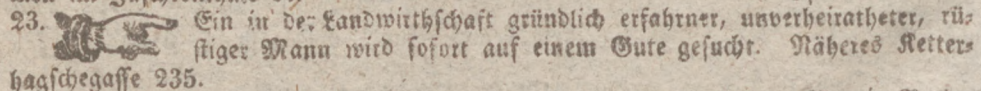 23. Ein in der Landwirthschaft gründlich erfahrner, unverheiratheter, rü-
stiger Mann wird sofort auf einem Gute gesucht. Näheres Ketter-
hagschegasse 235.